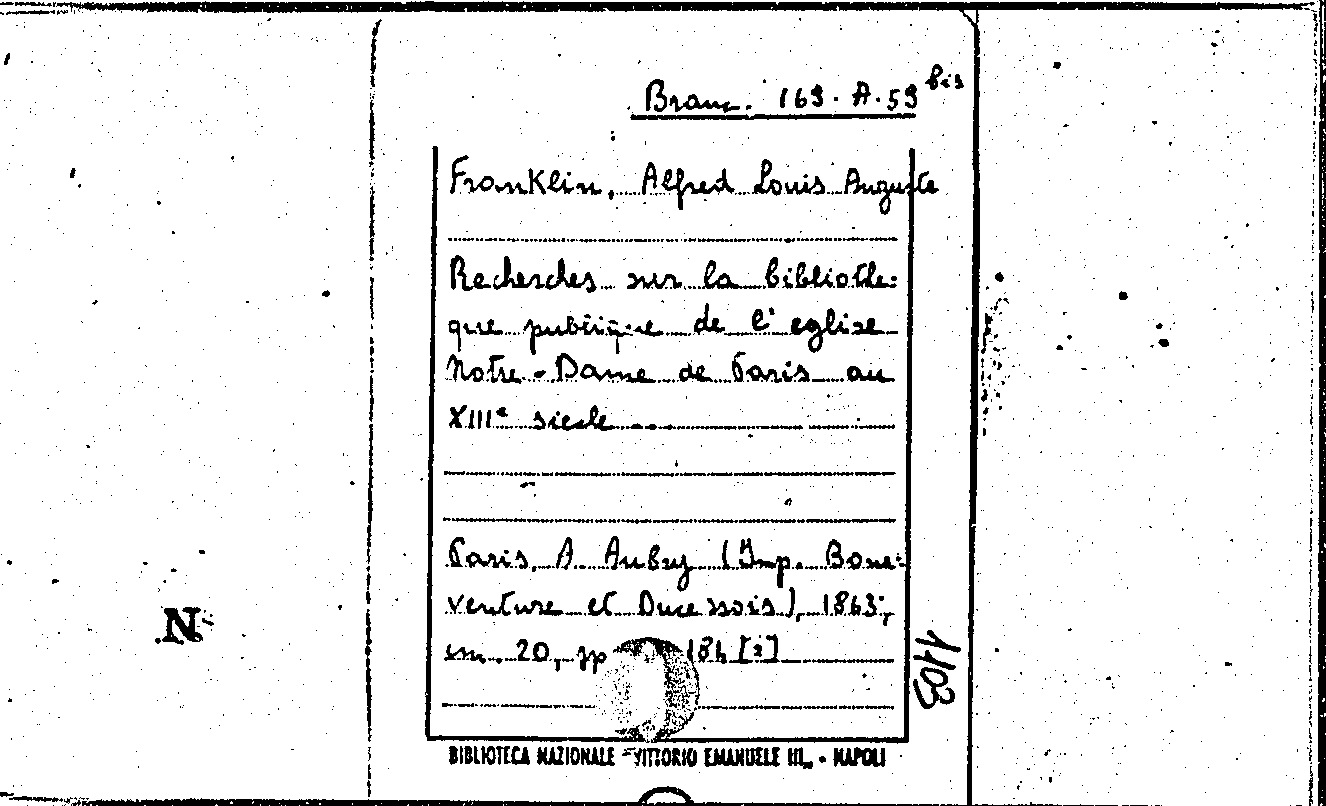 Branc. 169. A. 59 bis
Franklin, Alfred Louis Auguste
Recherches sur la bibliothe-
que publique de l'eglise
Notre-Dame de Paris au
XIIIe siecle
Paris, A. Aubry (Imp. Bona-
venture et Ducessois), 1863;
cm. 20, pp 184 [2]
1103
N
BIBLIOTECA NAZIONALE "VITTORIO EMANUELE III„ - NAPOLI